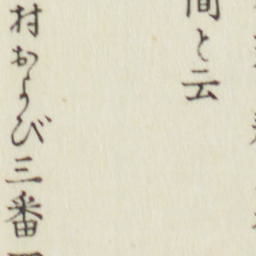 間と云
村および三番